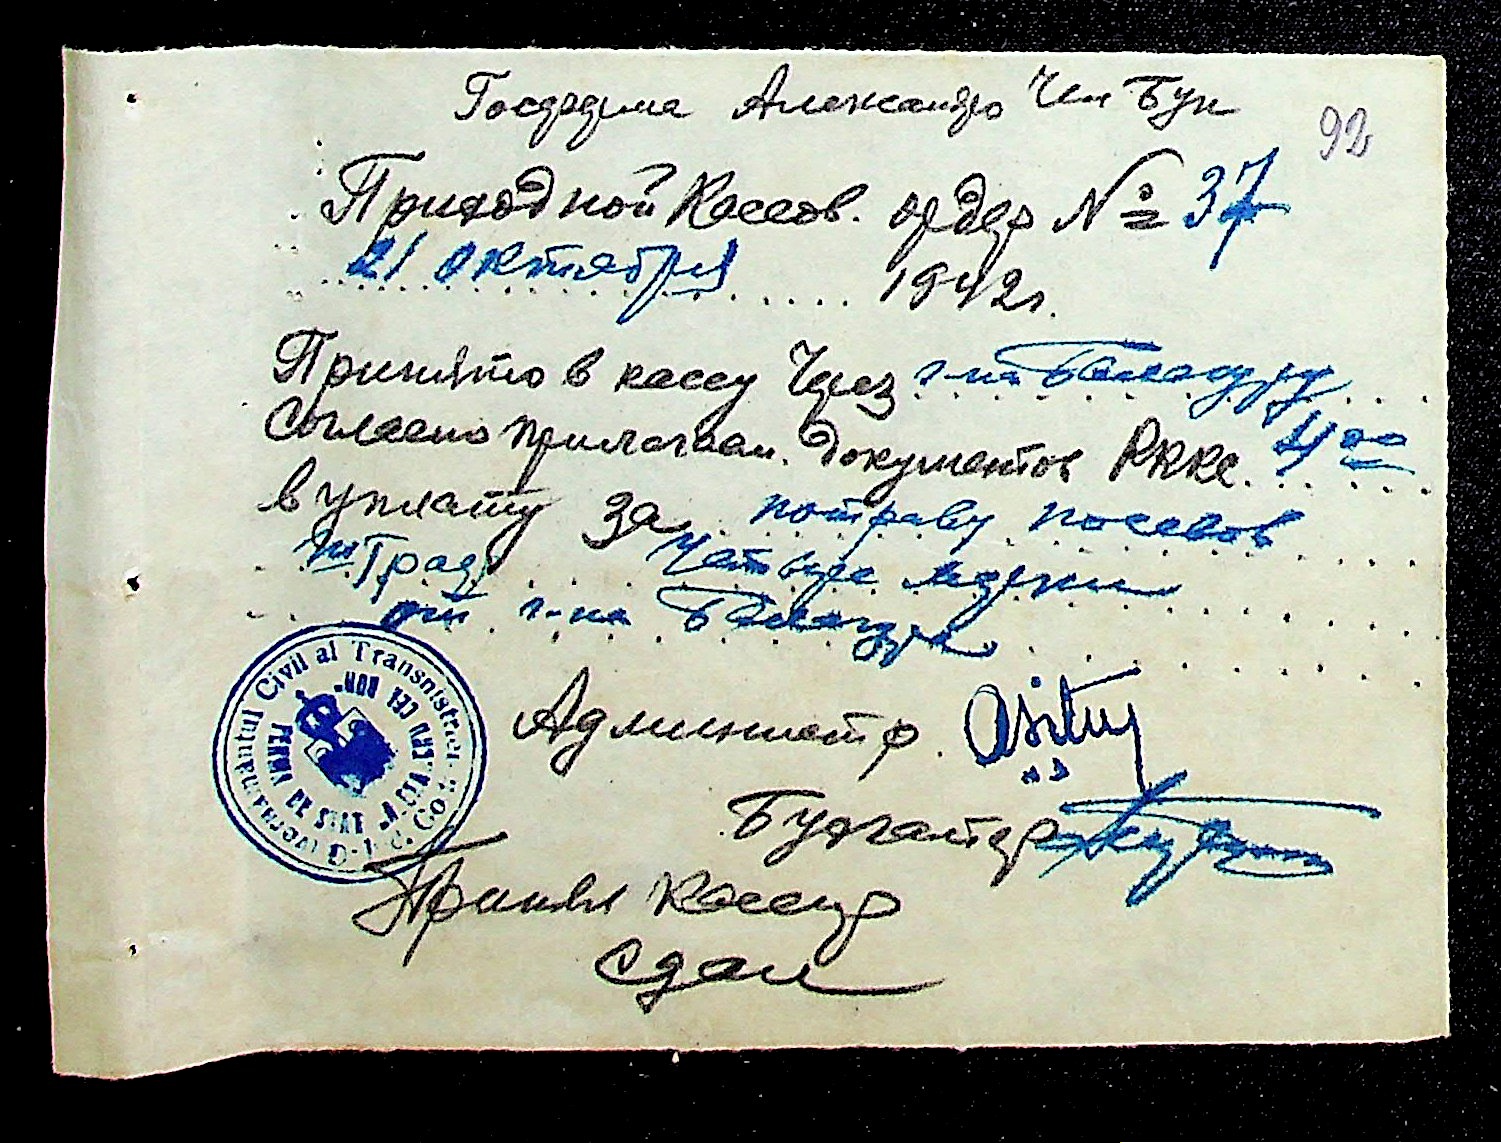 Госферма Александро Чел Бун
92
Приходной Кассов. ордер № 37
21 октября 1942 г.
Принято в кассу Через г-на
Согласно прилагаем. документов RKKс. 4 00
в уплату за потраву посевов
штраф Четыре марки
от г-на
Guvernamantul Civil al Transnistriei
FERMA DE STAT „ALEXANDRU CEL BUN"
Администр.
Бухгалтер
Принял Кассир
Сдал